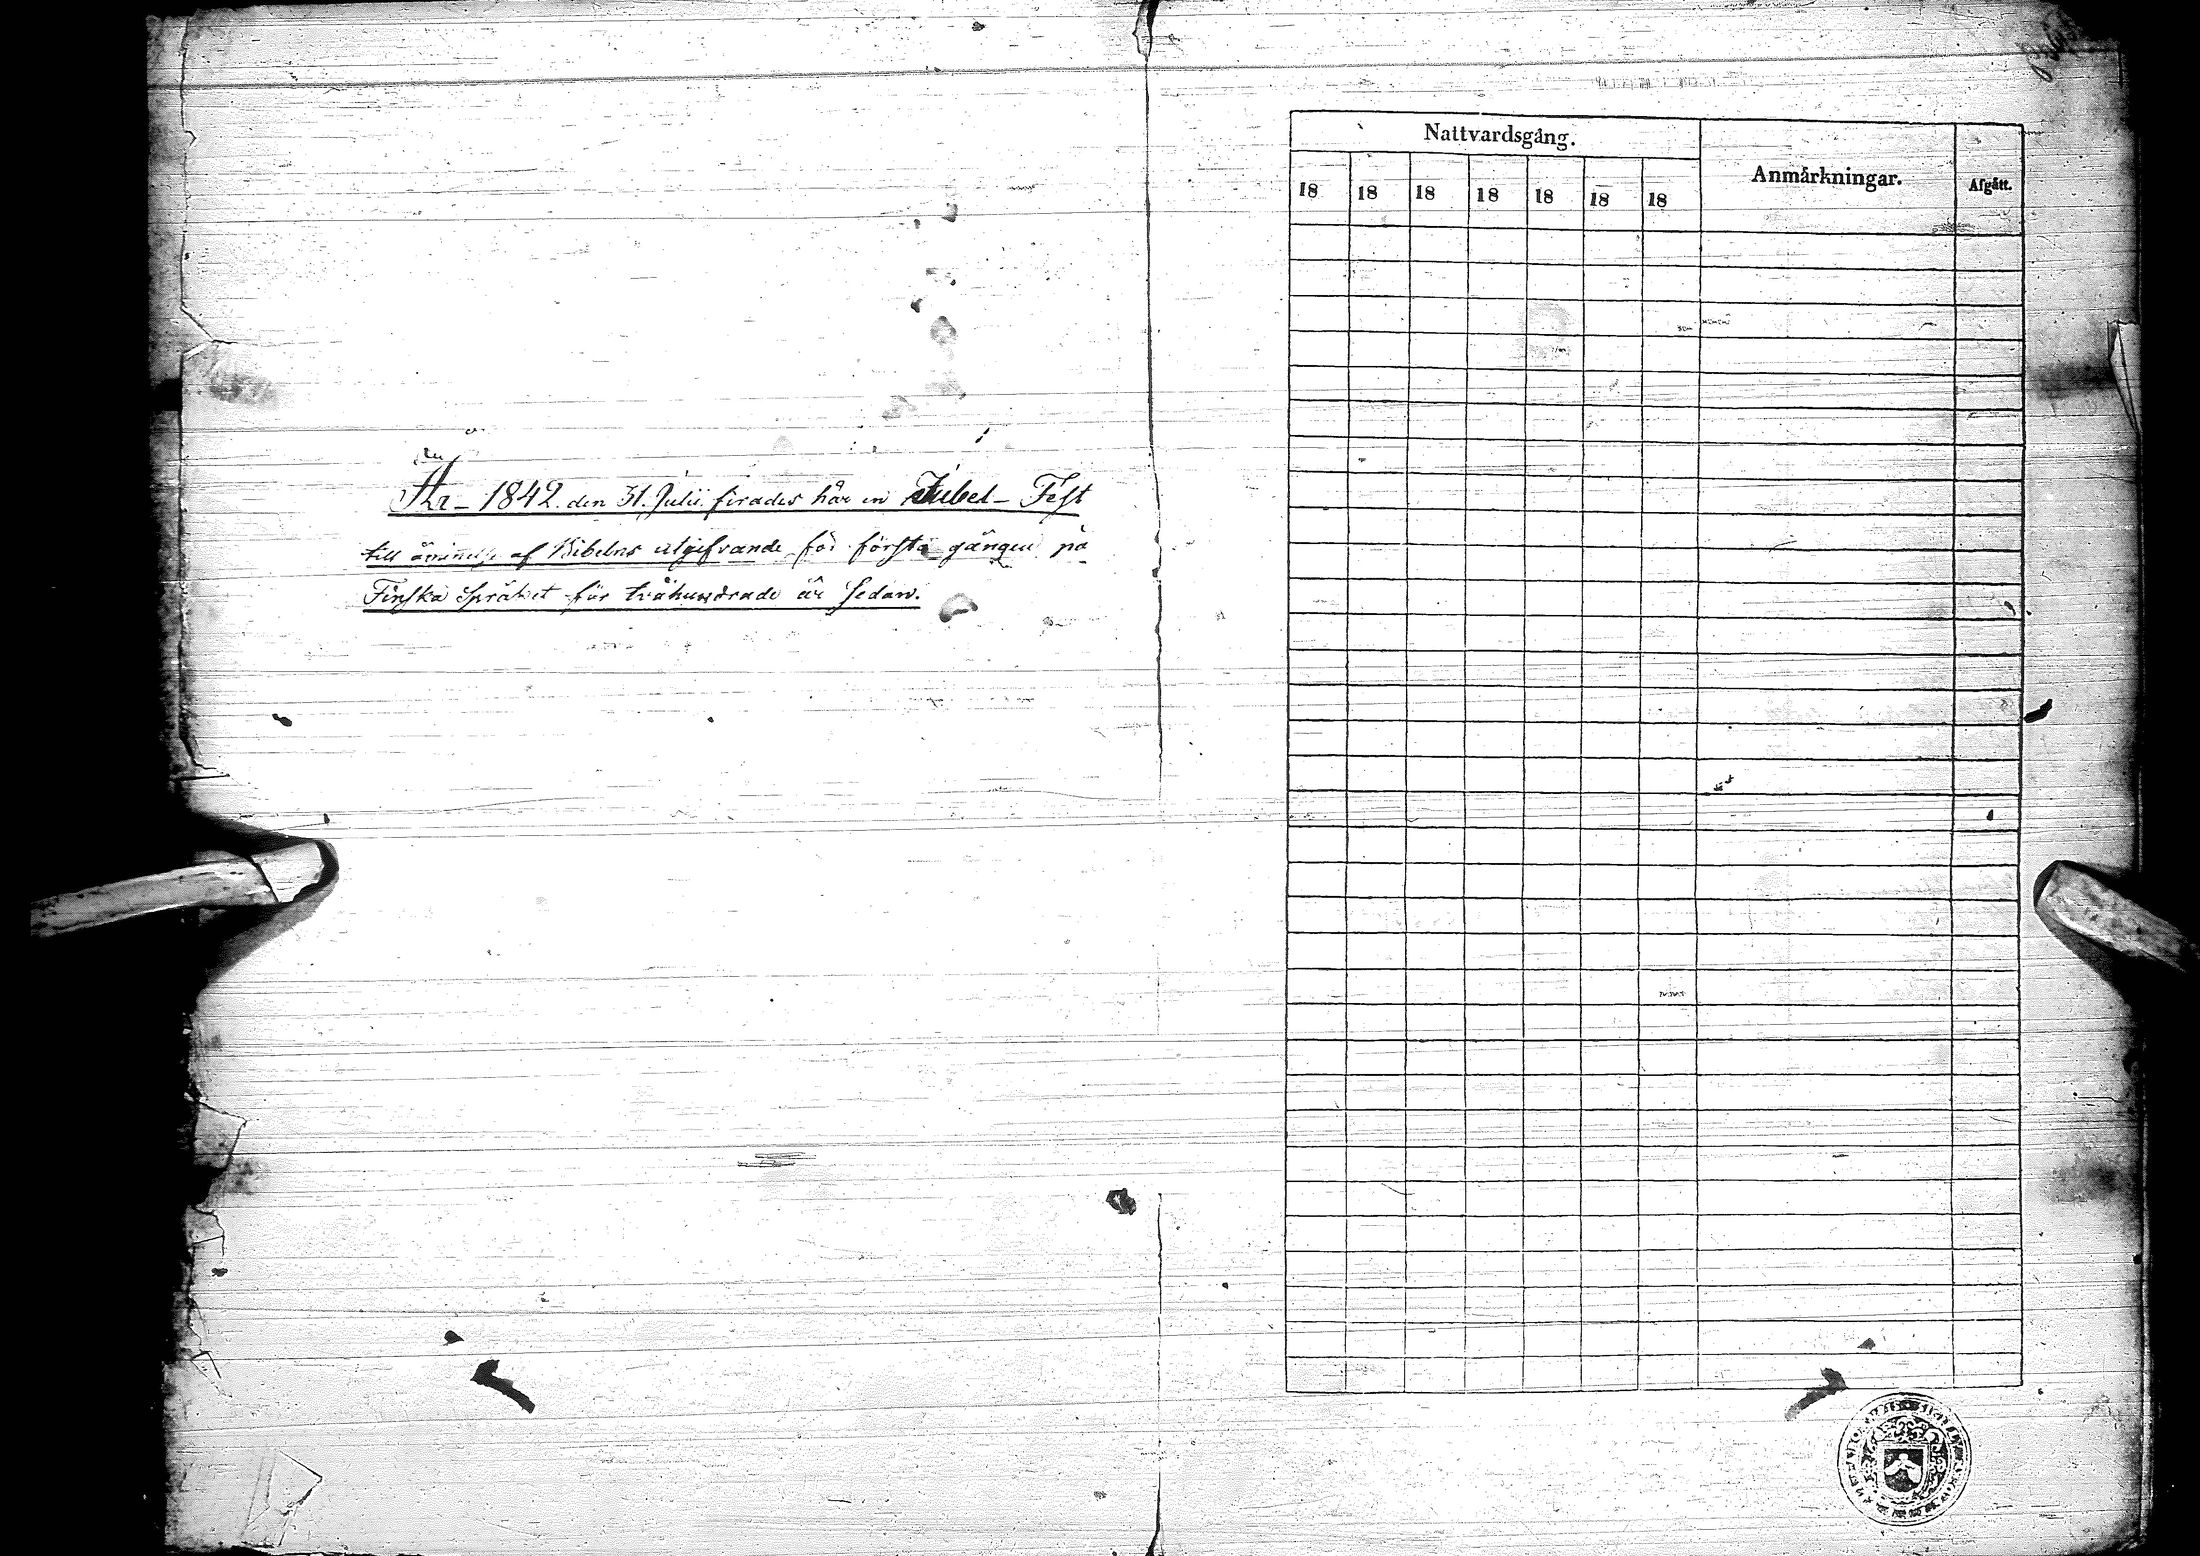 År 1842 den 31. Julii firades här en Jubel-Fest
till åminnelse af Bibelns utgifvande för första gången på
Finska Språket för tvåhundrade år Sedan.
Nattvardsgång.
Anmärkningar.
Afgått.
18 18 18 18 18 18 18